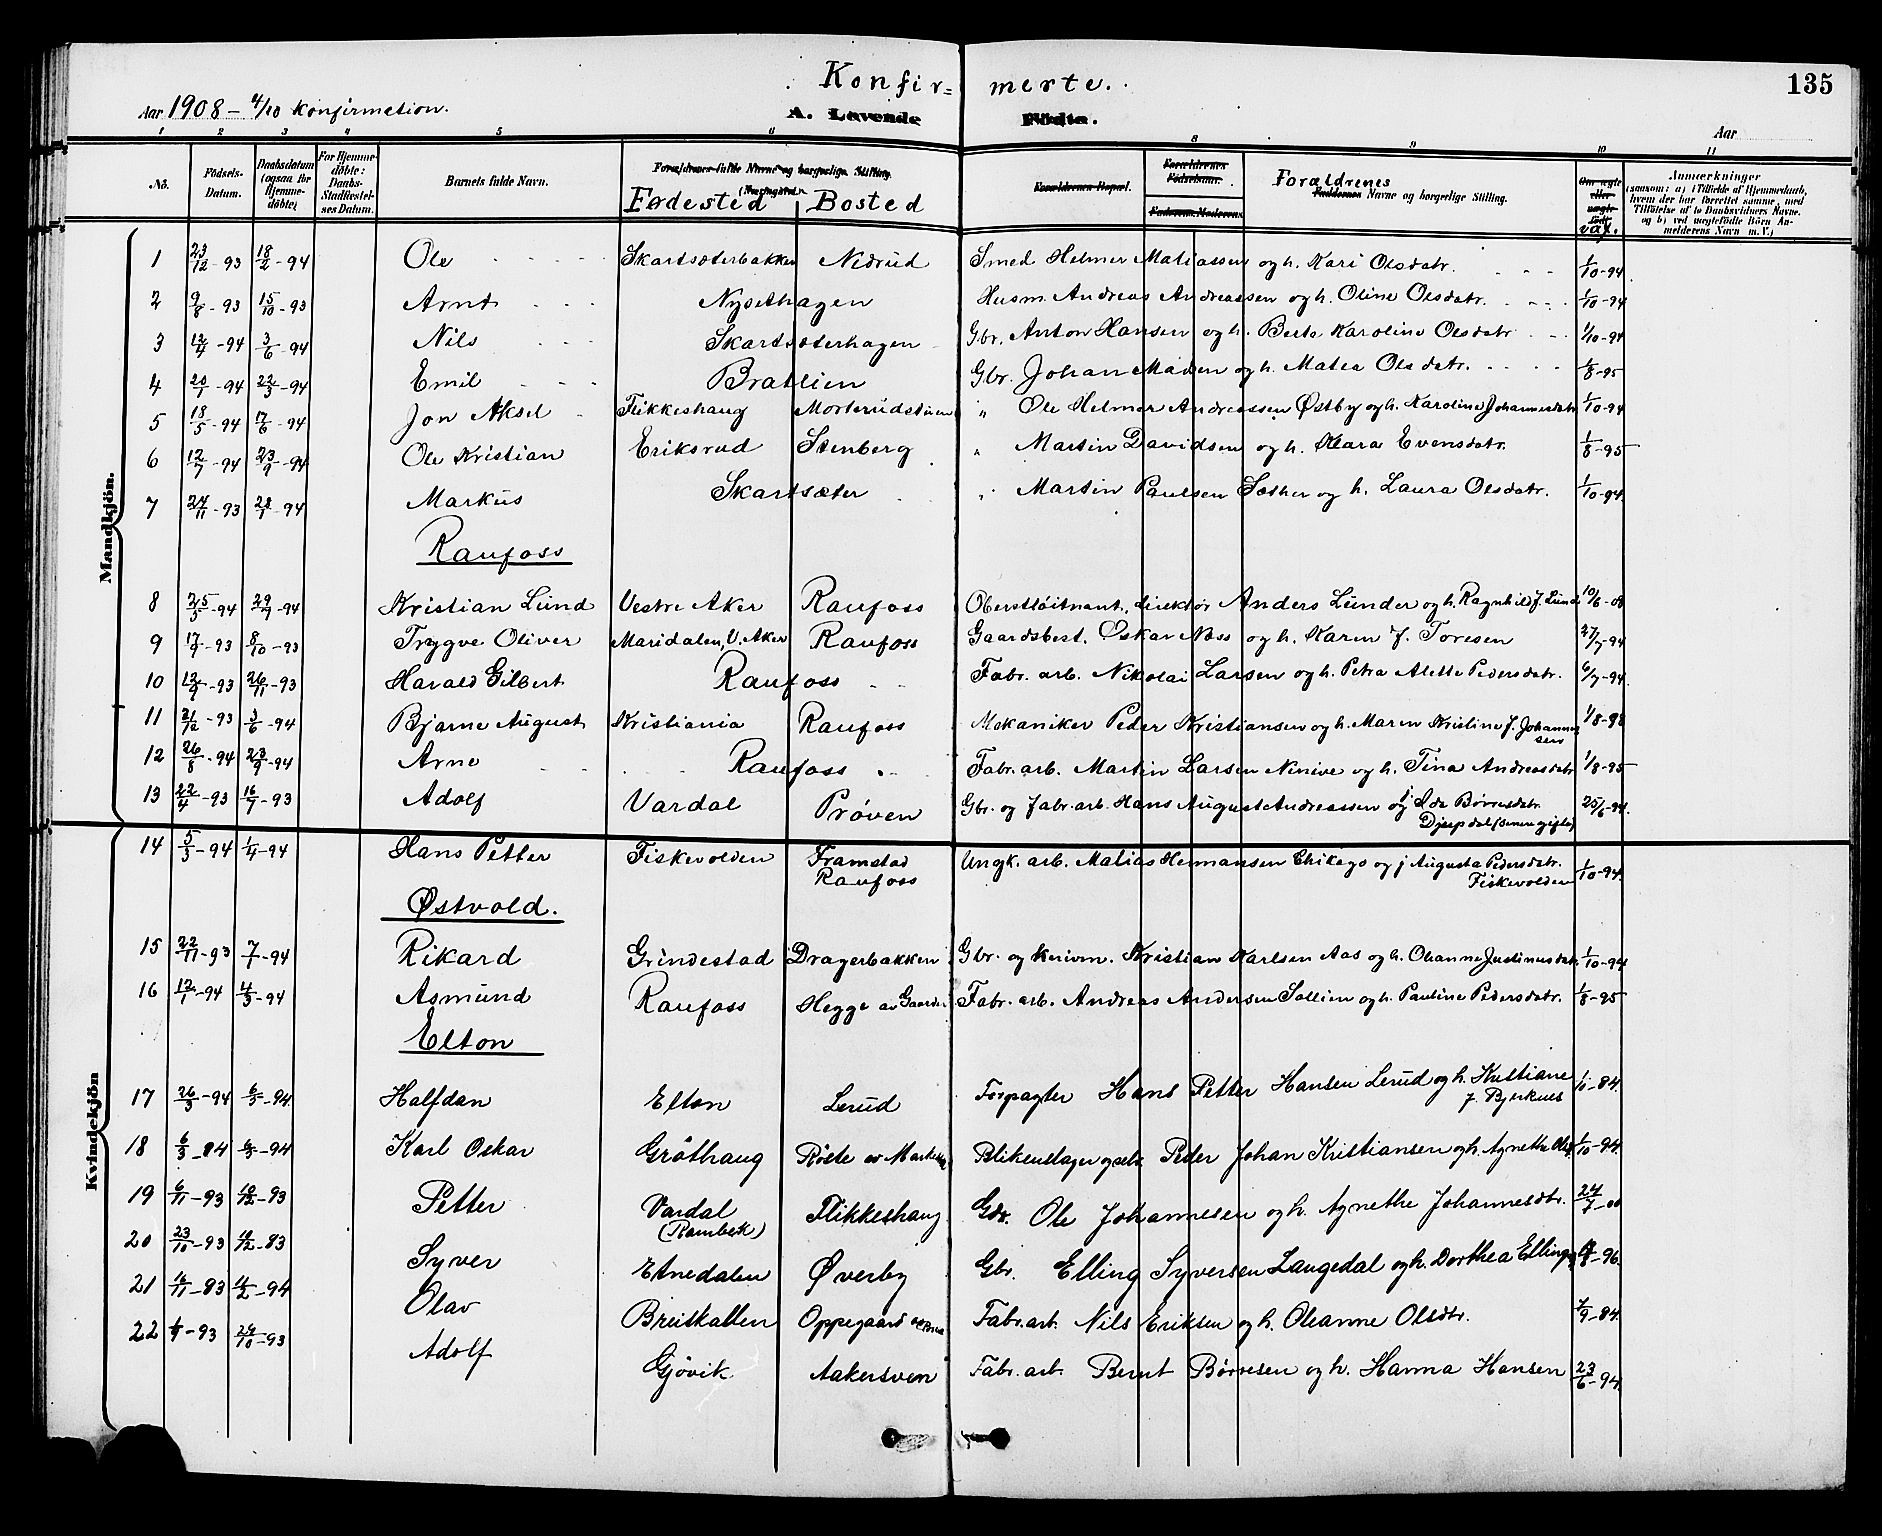 135
Konfir= merte.
Aar 1908 - 4/10 konfirmation.
A. Levende Fødte.
Aar
1 2 3 4 5 6 8 9 10 11
No.
Födsels-Datum.
Daabsdatum (ogsaa for Hjemme-döbte)
For Hjemme-döbte: Daabs-Stadfæstel-ses Datum.
Barnets fulde Navn.
Forældrenes fulde Navne og borgerlige Stilling.
Fødested Bosted
Forældrenes Bopæl.
Forældrenes Födselsaar.
Faderens. Moderens.
Forældrenes
Faddernes Navne og borgerlige Stilling.
Om ægte eller uægte födt.
vax.
Anmærkninger
(saasom: a) i Tilfælde af Hjemmedaab, hvem der har forrettet samme, med Tilföielse af to Daabsvidners Navne. og b) ved uægtefödte Börn An-melderens Navn m. V.)
Mandkjön.
1 23/12-93 18/2-94 Ole Skartsæterbakken Nedrud Smed Helmer Matiassen og h. Kari Olsdatr. 1/10-94
2 9/8-93 15/10-93 Arnt Nysethagen Husm. Andreas Andreassen og h. Oline Olsdatr. 1/10-94
3 12/4-94 3/6-94 Nils Skartsæterhagen Gbr. Anton Hansen og h. Berte Karoline Olsdatr 1/10-94
4 20/1-94 22/3-94 Emil Bratlien Gbr. Johan Madsen og h. Matea Olsdatr. 1/8-95
5 18/5-94 17/6-94 Jon Aksel Flikkeshaug Morterudstuen " Ole Helmer Andreassen Østby og h. Karoline Johannesdatr 1/10-94
6 12/7-94 23/9-94 Ole Kristian Eriksrud Stenberg " Martin Davidsen og h. Klara Evensdatr. 1/8-95
7 24/11-93 28/1-94 Markus Skartsæter " Martin Paulsen Sæther og h. Laura Olsdatr. 1/10-94
Raufoss
8 25/5-94 29/7-94 Kristian Lund Vestre Aker Raufoss Oberstløitnant, direktør Anders Lunder og h. Ragnhild f. Lund 10/6-08
9 17/9-93 8/10-93 Trygve Oliver Maridalen, V. Aker Raufoss Gaardsbest. Oskar Næss og h. Karen f. Toresen 27/7-94
10 12/9-93 26/11-93 Harald Gilbert Raufoss Fabr. arb. Nikolai Larsen og h. Petra Alette Pedersdatr. 6/7-94
11 21/12-93 3/6-94 Bjarne August Kristiania Raufoss Mekaniker Peder Kristiansen og h. Maren Kristine f. Johannessen 1/8-98
12 26/8-94 23/9-94 Arne Raufoss Fabr. arb. Martin Larsen Ninive og h. Tina Andreasdatr 1/8-95
13 22/4-93 16/7-93 Adolf Vardal Prøven Gbr. og fabr. arb. Hans August Andreassen og j. Ida Børresdatr. Djupdal (senere gifte) 25/6-94
Kvindekjön
14 5/3-94 1/4-94 Hans Petter Fiskevolden Framstad Raufoss Ungk. arb. Matias Hermansen Chikago og j Augusta Pedersdatr. Fiskevolden 1/10-94.
Østvold.
15 22/11-93 7/1-94 Rikard Grindestad Dragerbakken Gbr. og Kirivm. Kristian Karlsen Aas og h. Ohanne Justinusdatr. 1/10-94
16 12/1-94 4/3-94 Asmund Raufoss Hegge av Gaarder Fabr. arb. Andreas Andersen Sollien og h. Pauline Pedersdatr. 1/8-95
Elton
17 26/3-94 6/5-94 Halfdan Elton Lerud Forpagter Hans Petter Hansen Lerud og h. Kristiane f. Bjerknes 1/10-84
18 6/3-84 6/5-94 Karl Oskar Grøthaug Røste av Blikenslager Peder Johan Kristiansen og h. Agnethe 1/10-94
19 6/11-93 10/12-93 Petter Vardal (Rambek) Flikkeshaug Gbr. Ole Johannesen og h. Agnethe Johannesdtr. 24/7-00
20 23/10-93 10/12-83 Syver Etnedalen Øverby Gbr. Elling Syversen Langedal og h. Dorthea 8-96
21 16/11-83 11/2-94 Olav Breiskallen Oppegaard Fabr. arb. Nils Eriksen og h. Oleanne Olsdtr. 7/9-84.
22 9-93 29/10-93 Adolf Gjøvik Aakersveen Fabr. arb. Bernt Børresen og h. Hanna Hansen 23/6-94